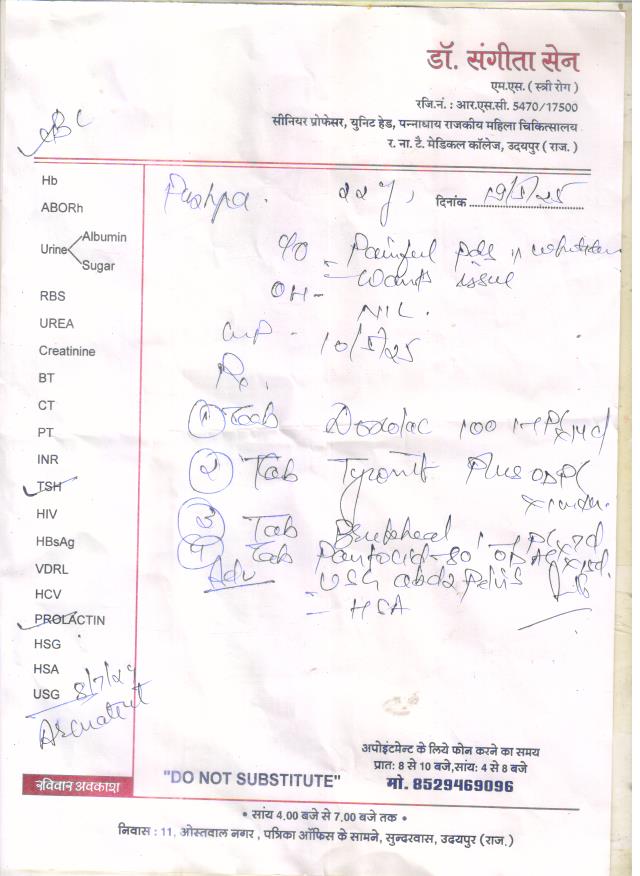 डॉ. संगीता सेन
एम.एस. ( स्त्री रोग )
रजि.नं. : आर.एस.सी. 5470/17500
सीनियर प्रोफेसर, युनिट हेड, पन्नाधाय राजकीय महिला चिकित्सालय
र. ना. टै. मेडिकल कॉलेज, उदयपुर ( राज. )
Pushpa. २२ y, दिनांक 19/5/25
Hb
ABORh
Urine Albumin
Sugar
RBS
UREA
Creatinine
BT
CT
PT
INR
TSH
HIV
HBsAg
VDRL
HCV
PROLACTIN
HSG
HSA
USG 8/7/24
रविवार अवकाश
C/O Painful
Wants issue
OH - NIL.
LMP - 10/5/25
Rx,
① Tab 100
② Tab Plus OD
③ Tab
④ Tab Pantocid
Adv USG abd & Pelvis
HSA
अपोइंटमेन्ट के लिये फोन करने का समय
प्रात: 8 से 10 बजे,सांय: 4 से 8 बजे
मो. 8529469096
"DO NOT SUBSTITUTE"
• सांय 4.00 बजे से 7.00 बजे तक •
निवास : 11, ओस्तवाल नगर , पत्रिका ऑफिस के सामने, सुन्दरवास, उदयपुर (राज.)